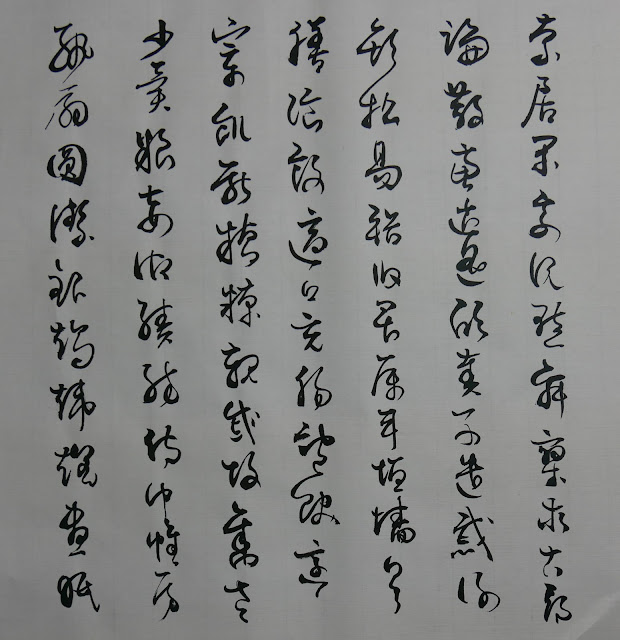 索居閑處沉默寂寥求古尋
論散慮逍遙欣奏累遣慼謝
歡招易輶攸畏屬耳垣牆具
膳飡飯適口充腸飽飫烹
宰飢厭糟糠親戚故舊老
少異糧妾御績紡侍巾帷房
紈扇圓潔銀燭煒煌晝眠